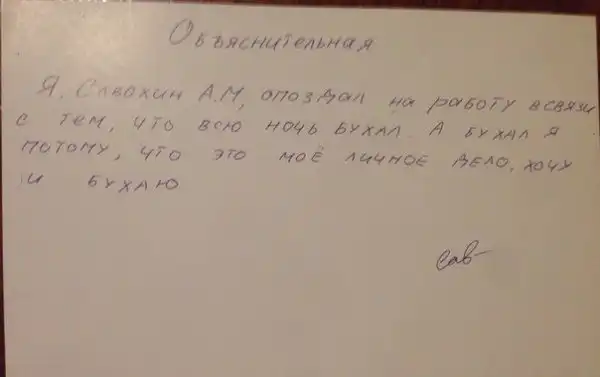 Объяснительная
Я, Савохин А.М, опоздал на работу всвязи
с тем, что всю ночь бухал. А бухал я
потому, что это моё личное дело, хочу
и бухаю
Сав